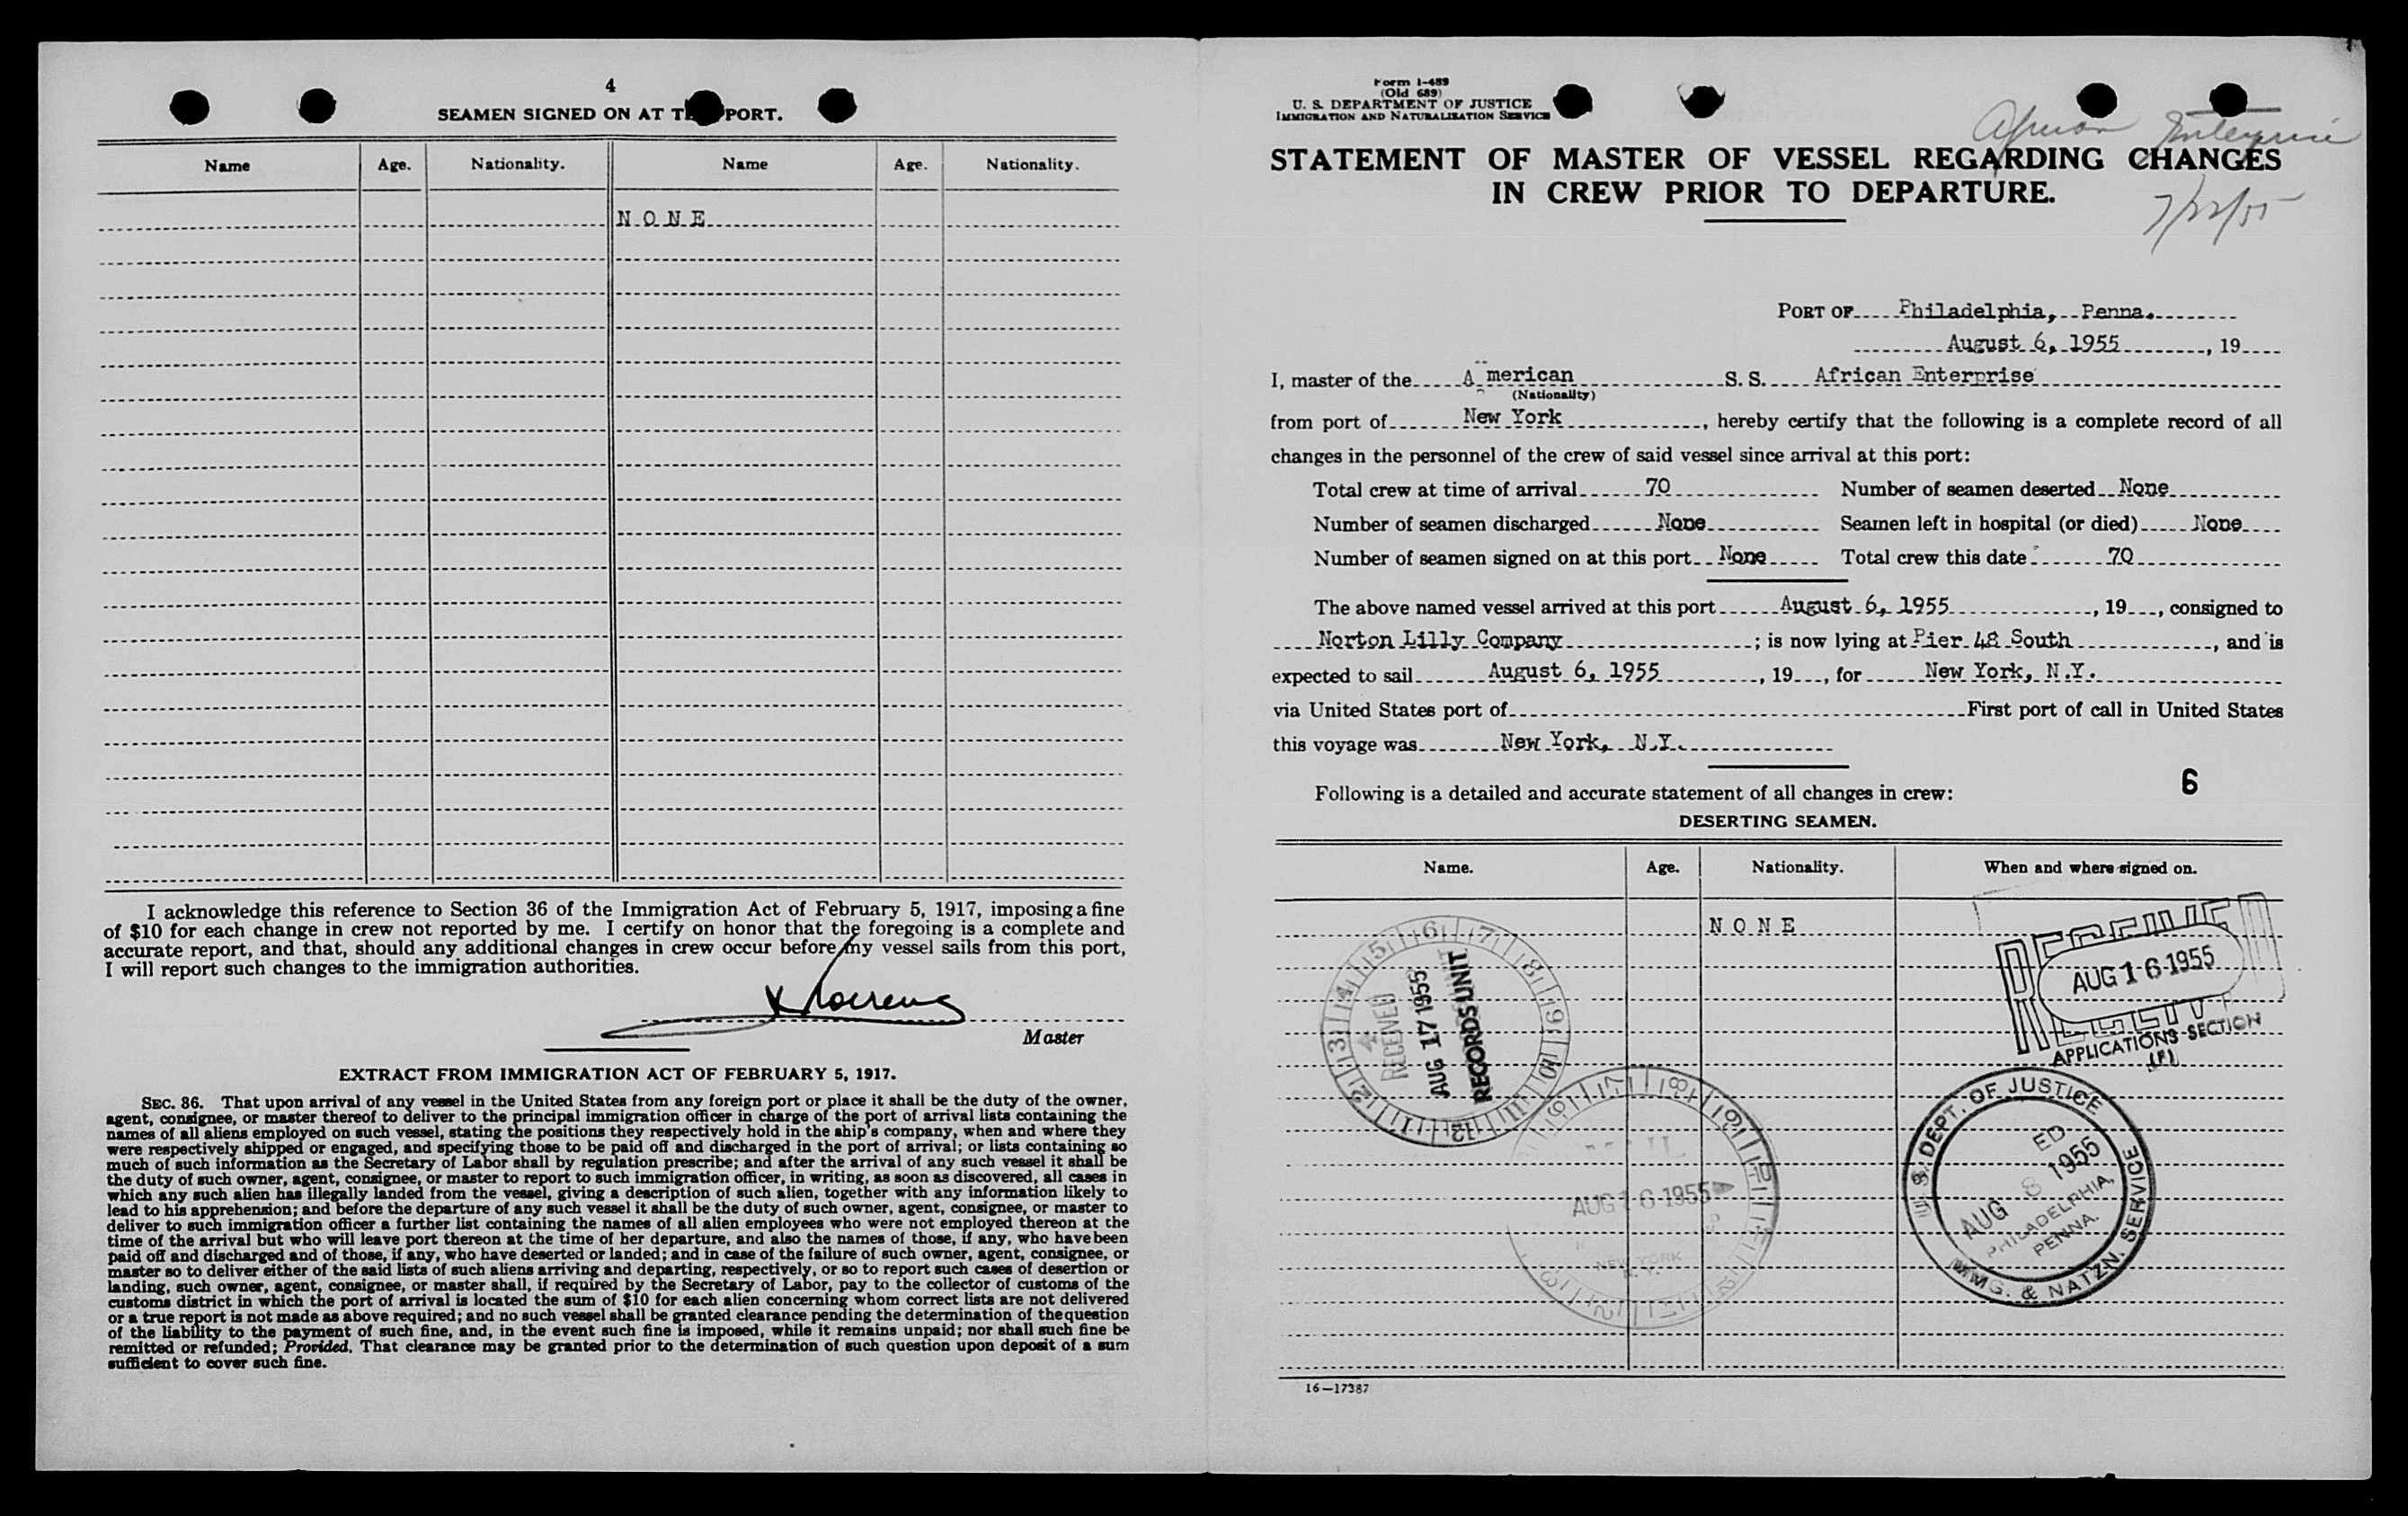 4
SEAMEN SIGNED ON AT T PORT.
Name Age. Nationality. Name Age. Nationality.
N O N E
I acknowledge this reference to Section 36 of the Immigration Act of February 5, 1917, imposing a fine
of $10 for each change in crew not reported by me. I certify on honor that the foregoing is a complete and
accurate report, and that, should any additional changes in crew occur before my vessel sails from this port,
I will report such changes to the immigration authorities.
Master
EXTRACT FROM IMMIGRATION ACT OF FEBRUARY 5, 1917.
SEC. 36. That upon arrival of any vessel in the United States from any foreign port or place it shall be the duty of the owner,
agent, consignee, or master thereof to deliver to the principal immigration officer in charge of the port of arrival lists containing the
names of all aliens employed on such vessel, stating the positions they respectively hold in the ship's company, when and where they
were respectively shipped or engaged, and specifying those to be paid off and discharged in the port of arrival; or lists containing so
much of such information as the Secretary of Labor shall by regulation prescribe; and after the arrival of any such vessel it shall be
the duty of such owner, agent, consignee, or master to report to such immigration officer, in writing, as soon as discovered, all cases in
which any such alien has illegally landed from the vessel, giving a description of such alien, together with any information likely to
lead to his apprehension; and before the departure of any such vessel it shall be the duty of such owner, agent, consignee, or master to
deliver to such immigration officer a further list containing the names of all alien employees who were not employed thereon at the
time of the arrival but who will leave port thereon at the time of her departure, and also the names of those, if any, who have been
paid off and discharged and of those, if any, who have deserted or landed; and in case of the failure of such owner, agent, consignee, or
master so to deliver either of the said lists of such aliens arriving and departing, respectively, or so to report such cases of desertion or
landing, such owner, agent, consignee, or master shall, if required by the Secretary of Labor, pay to the collector of customs of the
customs district in which the port of arrival is located the sum of $10 for each alien concerning whom correct lists are not delivered
or a true report is not made as above required; and no such vessel shall be granted clearance pending the determination of the question
of the liability to the payment of such fine, and, in the event such fine is imposed, while it remains unpaid; nor shall such fine be
remitted or refunded; Provided, That clearance may be granted prior to the determination of such question upon deposit of a sum
sufficient to cover such fine.
Form I-489
(Old 689)
U. S. DEPARTMENT OF JUSTICE
IMMIGRATION AND NATURALIZATION SERVICE
African Enterprise
7/22/55
STATEMENT OF MASTER OF VESSEL REGARDING CHANGES
IN CREW PRIOR TO DEPARTURE.
PORT OF Philadelphia, Penna.
August 6, 1955, 19
I, master of the A merican S. S. African Enterprise
(Nationality)
from port of New York, hereby certify that the following is a complete record of all
changes in the personnel of the crew of said vessel since arrival at this port:
Total crew at time of arrival 70 Number of seamen deserted None
Number of seamen discharged None Seamen left in hospital (or died) None
Number of seamen signed on at this port None Total crew this date 70
The above named vessel arrived at this port August 6, 1955, 19, consigned to
Norton Lilly Company; is now lying at Pier 48 South, and is
expected to sail August 6, 1955, 19, for New York, N.Y.
via United States port of First port of call in United States
this voyage was New York, N.Y.
6
Following is a detailed and accurate statement of all changes in crew:
DESERTING SEAMEN.
Name. Age. Nationality. When and where signed on.
N O N E
RECEIVED
AUG 17 1955
RECORDS UNIT
AUG 16 1955
APPLICATIONS SECTION
(F)
MAIL
AUG 16 1955
NEW YORK
U. S. DEPT. OF JUSTICE
ED
AUG 8 1955
PHILADELPHIA,
PENNA.
IMMG. & NATZN. SERVICE
16—17387